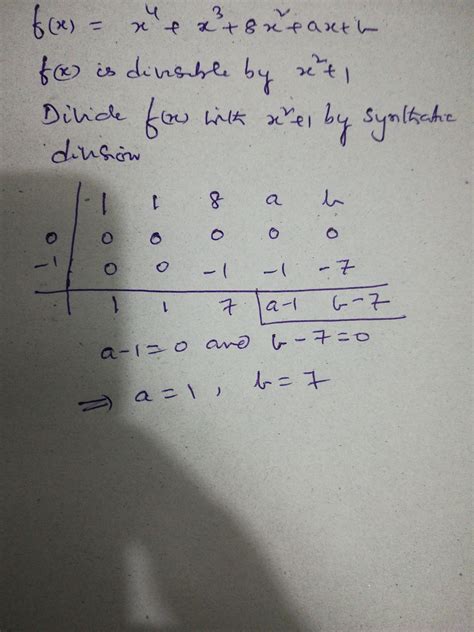 f(x) = x⁴ + x³ + 8x² + ax + b
f(x) is divisible by x²+1
Divide f(x) with x²+1 by synthetic
division
1 1 8 a b
0 0 0 0 0 0
-1 0 0 -1 -1 -7
1 1 7 a-1 b-7
a-1=0 and b-7=0
⇒ a=1, b=7